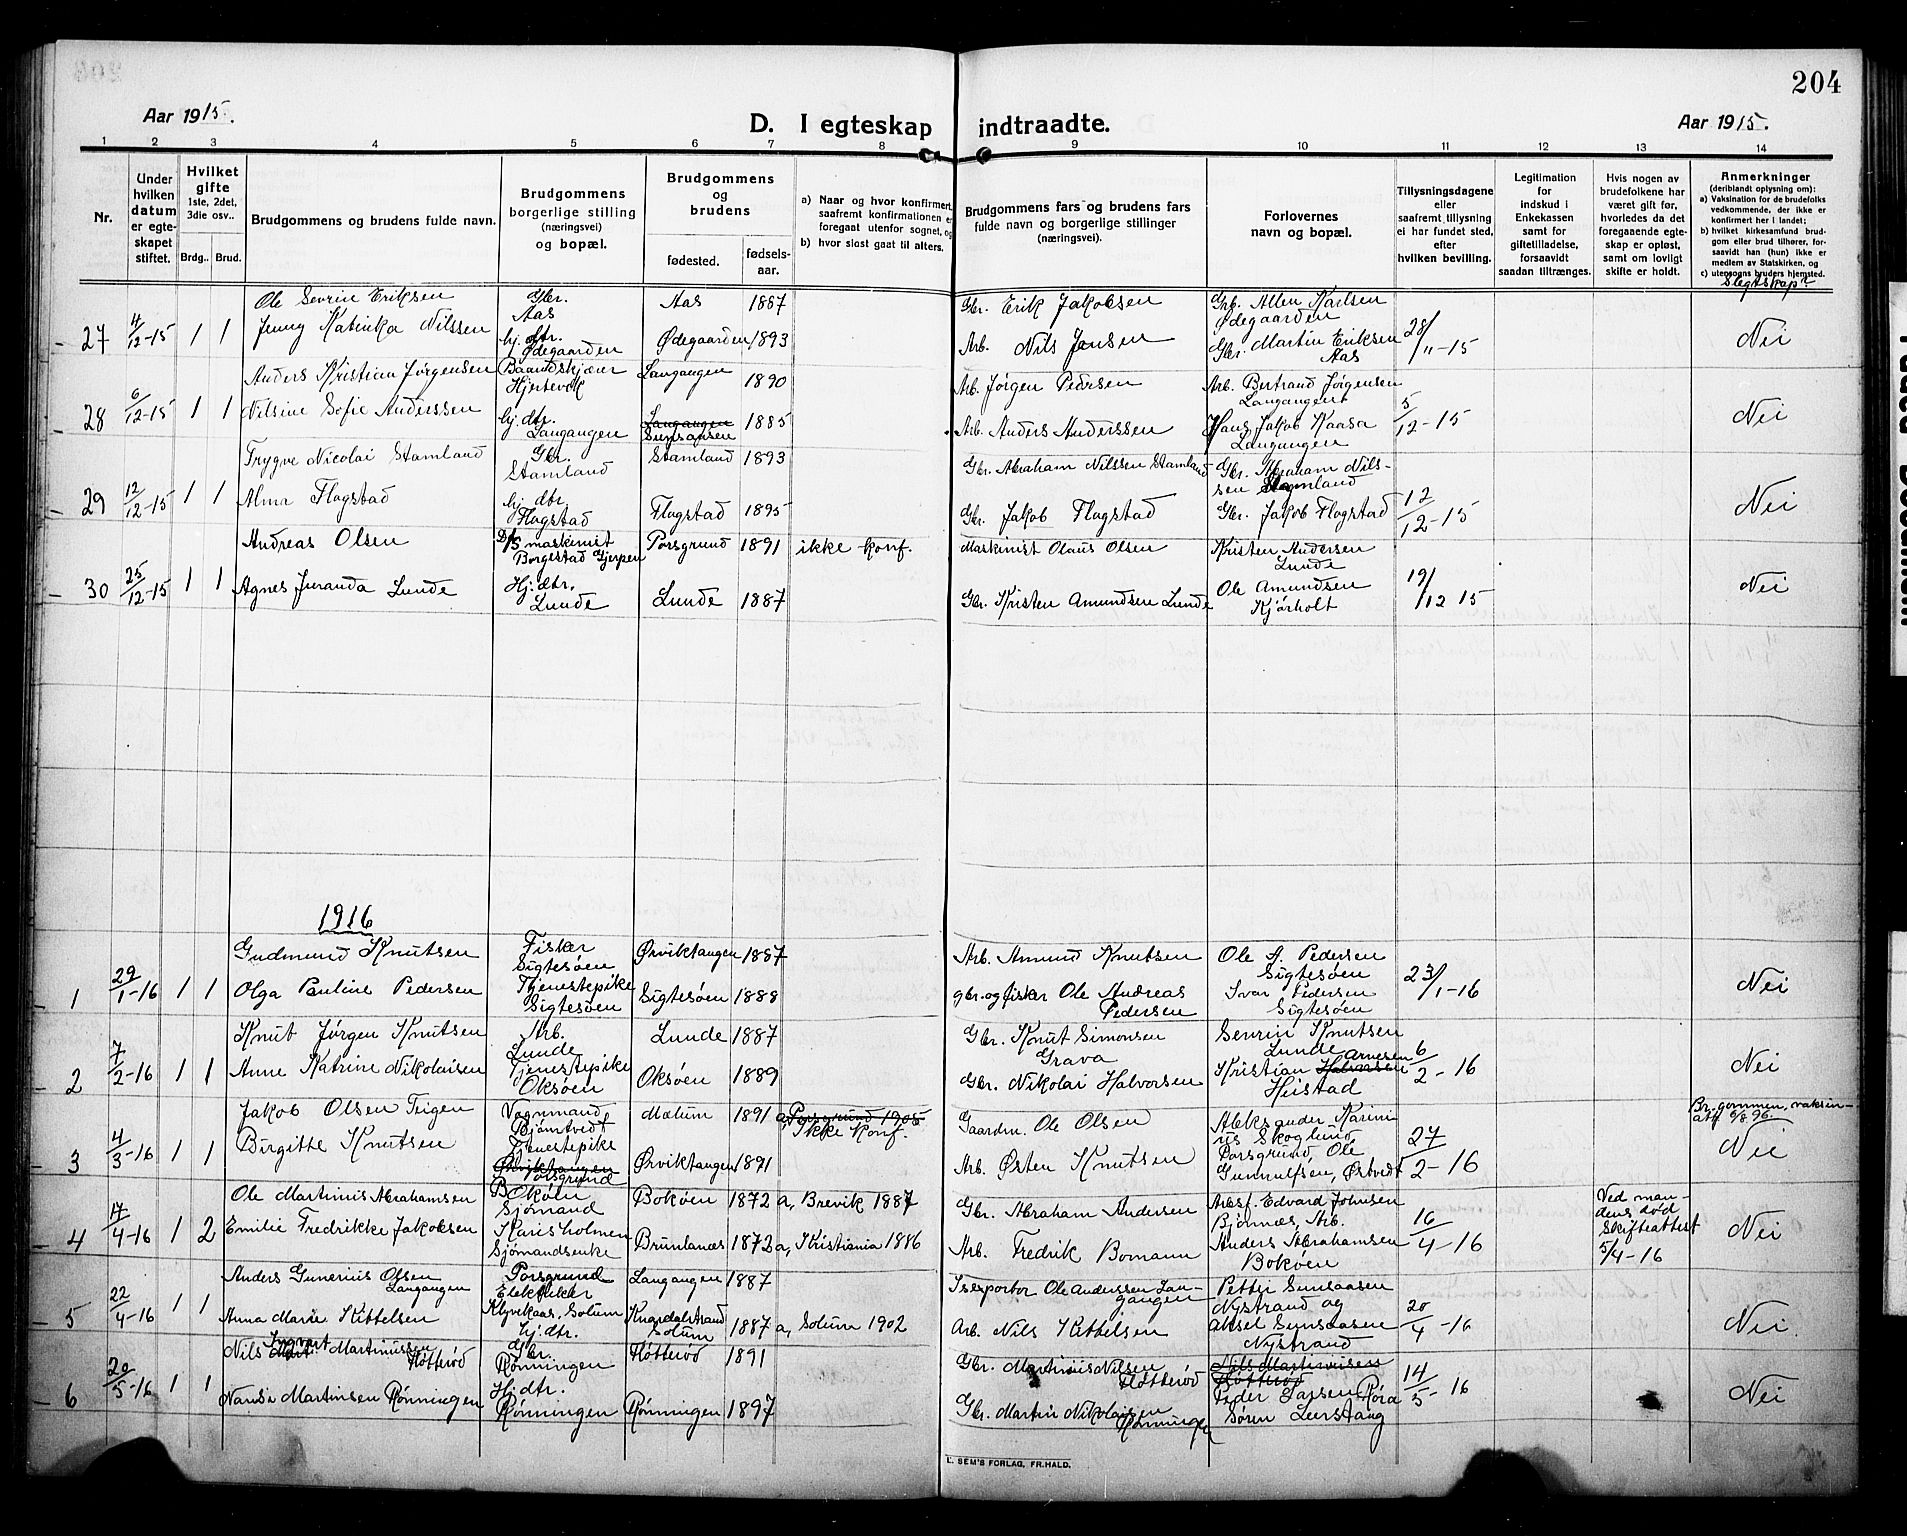 204
Aar 1915.
D. I egteskap indtraadte.
Aar 1915.
1 2 3 4 5 6 7 8 9 10 11 12 13 14
Nr.
Under hvilken datum er egteskapet stiftet.
Hvilket gifte 1ste, 2det, 3die osv..
Brdg..
Brud.
Brudgommens og brudens fulde navn.
Brudgommens borgerlige stilling (næringsvei) og bopæl.
Brudgommens og brudens
fødested.
fødsels-aar.
a) Naar og hvor konfirmert, saafremt konfirmationen er foregaat utenfor sognet, og
b) hvor sidst gaat til alters.
Brudgommens fars og brudens fars fulde navn og borgerlige stillinger (næringsvei).
Forlovernes navn og bopæl.
Tillysningsdagene eller saafremt tillysning ei har fundet sted, efter hvilken bevilling.
Legitimation for indskud i Enkekassen samt for giftetilladelse, forsaavidt saadan tiltrænges.
Hvis nogen av brudefolkene har været gift før, hvorledes da det foregaaende egteskap er opløst, samt om lovligt skifte er holdt.
Anmerkninger (deriblandt oplysning om):
a) Vaksination for de brudefolks vedkommende, der ikke er konfirmert her i landet;
b) hvilket kirkesamfund brudgom eller brud tilhører, forsaavidt han (hun) ikke er medlem av Statskirken, og
c) utensogns bruders hjemsted.
Slegtskap?
27 4/12-15 1 1
Ole Sevrin Eriksen Gbr. Aas Aas 1887 Gbr. Erik Jakobsen Arb. Allen Karlsen Ødegaarden
Jenny Katinka Nilssen hj. dtr. Ødegaarden Ødegaarden 1893 Arb. Nils Jensen Gbr. Martin Eriksen Aas 28/11-15 Nei
28 6/12-15 1 1
Anders Kristian Jørgensen Baandskjær Hjertevik Langangen 1890 Arb. Jørgen Pedersen Arb. Bertrand Jørgensen Langangen
Nilsine Sofie Anderssen hj. dtr. Langangen Langangen 1885 Arb. Anders Anderssen Hans Jakob Kaasa Langangen 5/12-15 Nei
29 12/12-15 1 1
Trygve Nicolai Stamland Gbr. Stamland Stamland 1893 Gbr. Abraham Nilssen Stamland Gbr. Abraham Nilssen Stamland
Alma Flogstad hj dtr Flogstad Flogstad 1895 Gbr. Jakob Flogstad Gbr. Jakob Flogstad 12/12-15 Nei
30 25/12-15 1 1
Andreas Olsen D/S maskinist Borgestad Gjerpen Porsgrund 1891 ikke konf. Maskinist Olaus Olsen Kristen Andersen Lunde
Agnes Juranda Lunde Hj. dtr. Lunde Lunde 1887 Gbr. Kristen Amundsen Lunde Ole Amundsen Kjørholt 19/12 15 Nei
1916
1 29/1-16 1 1
Gudmund Knutsen Fisker Sigtesøen Ørviktangen 1887 Arb. Amund Knutsen Ole A. Pedersen Sigtesøen
Olga Pauline Pedersen Tjenestepike Sigtesøen Sigtesøen 1888 gbr. og fisker Ole Andreas Pedersen Ivar Pedersen Sigtesøen 23/1-16 Nei
2 7/2-16 1 1
Knut Jørgen Knutsen Arb. Lunde Lunde 1887 Gbr. Knut Simonsen Grava Sevrin Knutsen Lunde
Anne Katrine Nikolaisen Tjenestepike Oksøen Oksøen 1889 Gbr. Nikolai Halvorsen Kristian Halvorsen Arnesen Heistad 6/2-16 Nei
3 4/3-16 1 1
Jakob Olsen Teigen Vognmand Bjørntvedt Mælum 1891 a, Porsgrund 1905 Ikke konf. Gaardm. Ole Olsen Aleksander Karinius Skoglund Porsgrund, Ole Gunnulfsen, Ørstvedt
Birgitte Knutsen Tjenestepike Ørviktangen Porsgrund Ørviktangen 1891 Arb. Østen Knutsen 27/2-16 Nei
Brudgommen, vaksin-att 9/8.96.
4 17/4-16 1 2
Ole Martinius Abrahamsen Bokøen Sjømand Bokøen 1872 a, Brevik 1887 Gbr. Abraham Andersen Arbsf. Edvard Johnsen Bjørnæs, Arb.
Emilie Fredrikke Jakobsen Karisholmen Sjømandsenke Brunlanæs 1872 a, Kristiania 1886 Arb. Fredrik Bomann Anders Abrahamsen Bokøen 16/4-16 Ved mandens død Skifteattest 5/4-16 Nei
5 22/4-16 1 1
Anders Gunerius Olsen Langangen Porsgrund Elektriker Langangen 1887 Iseportør Ole Anderssen Langangen Petter Sunsaasen Nystrand og
Anna Marie Kittelsen Klyvekaas. Solum hj. dtr. Knardalstrand Solum 1887 a, Solum 1902 Arb. Nils Kittelsen Aksel Sunsaasen Nystrand 20/4-16 Nei.
6 20/5-16 1 1
Nils Ingvart Martinussen Høtterød Gbr. Rønningen Høtterød 1891 Gbr. Martinius Nilsen Høtterød Nils Martinussen Høtterød
Nanda Martinsen Rønningen Hj. dtr. Rønningen Rønningen 1897 Gbr. Martin Nikolaisen Rønningen Peder Larsen Røra Søren Lerstang 14/5-16 Nei
L. SEM'S FORLAG, FR.HALD.